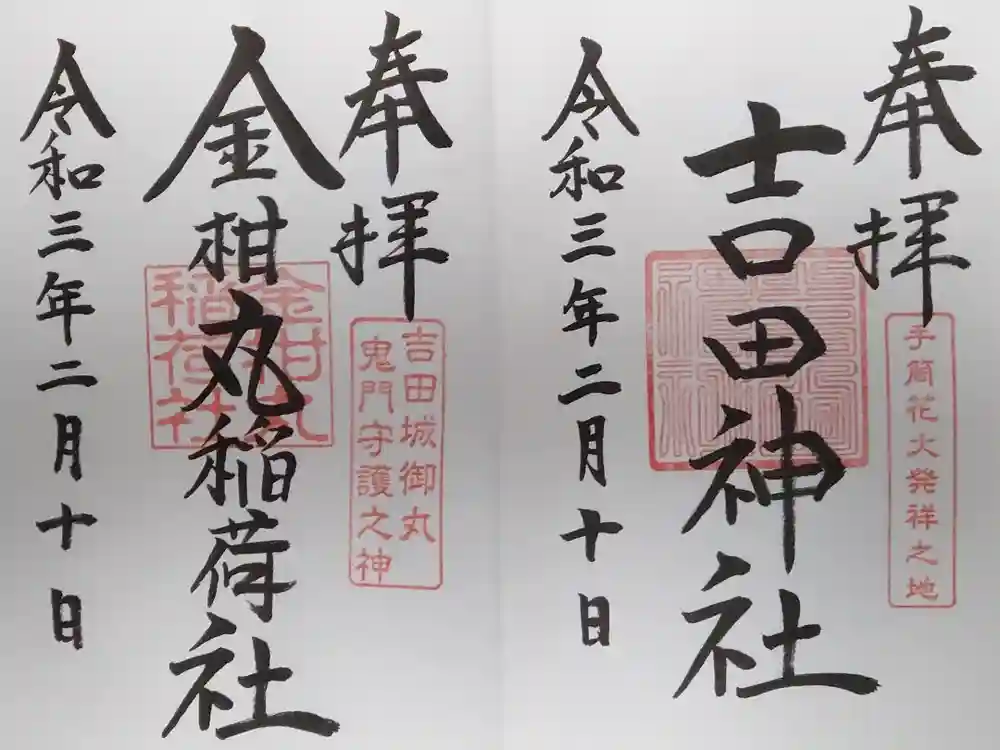 奉拝
手筒花火発祥之地
吉田神社
令和三年二月十日
奉拝
吉田城御丸
鬼門守護之神
金柑丸稲荷社
金柑丸
稲荷社
令和三年二月十日